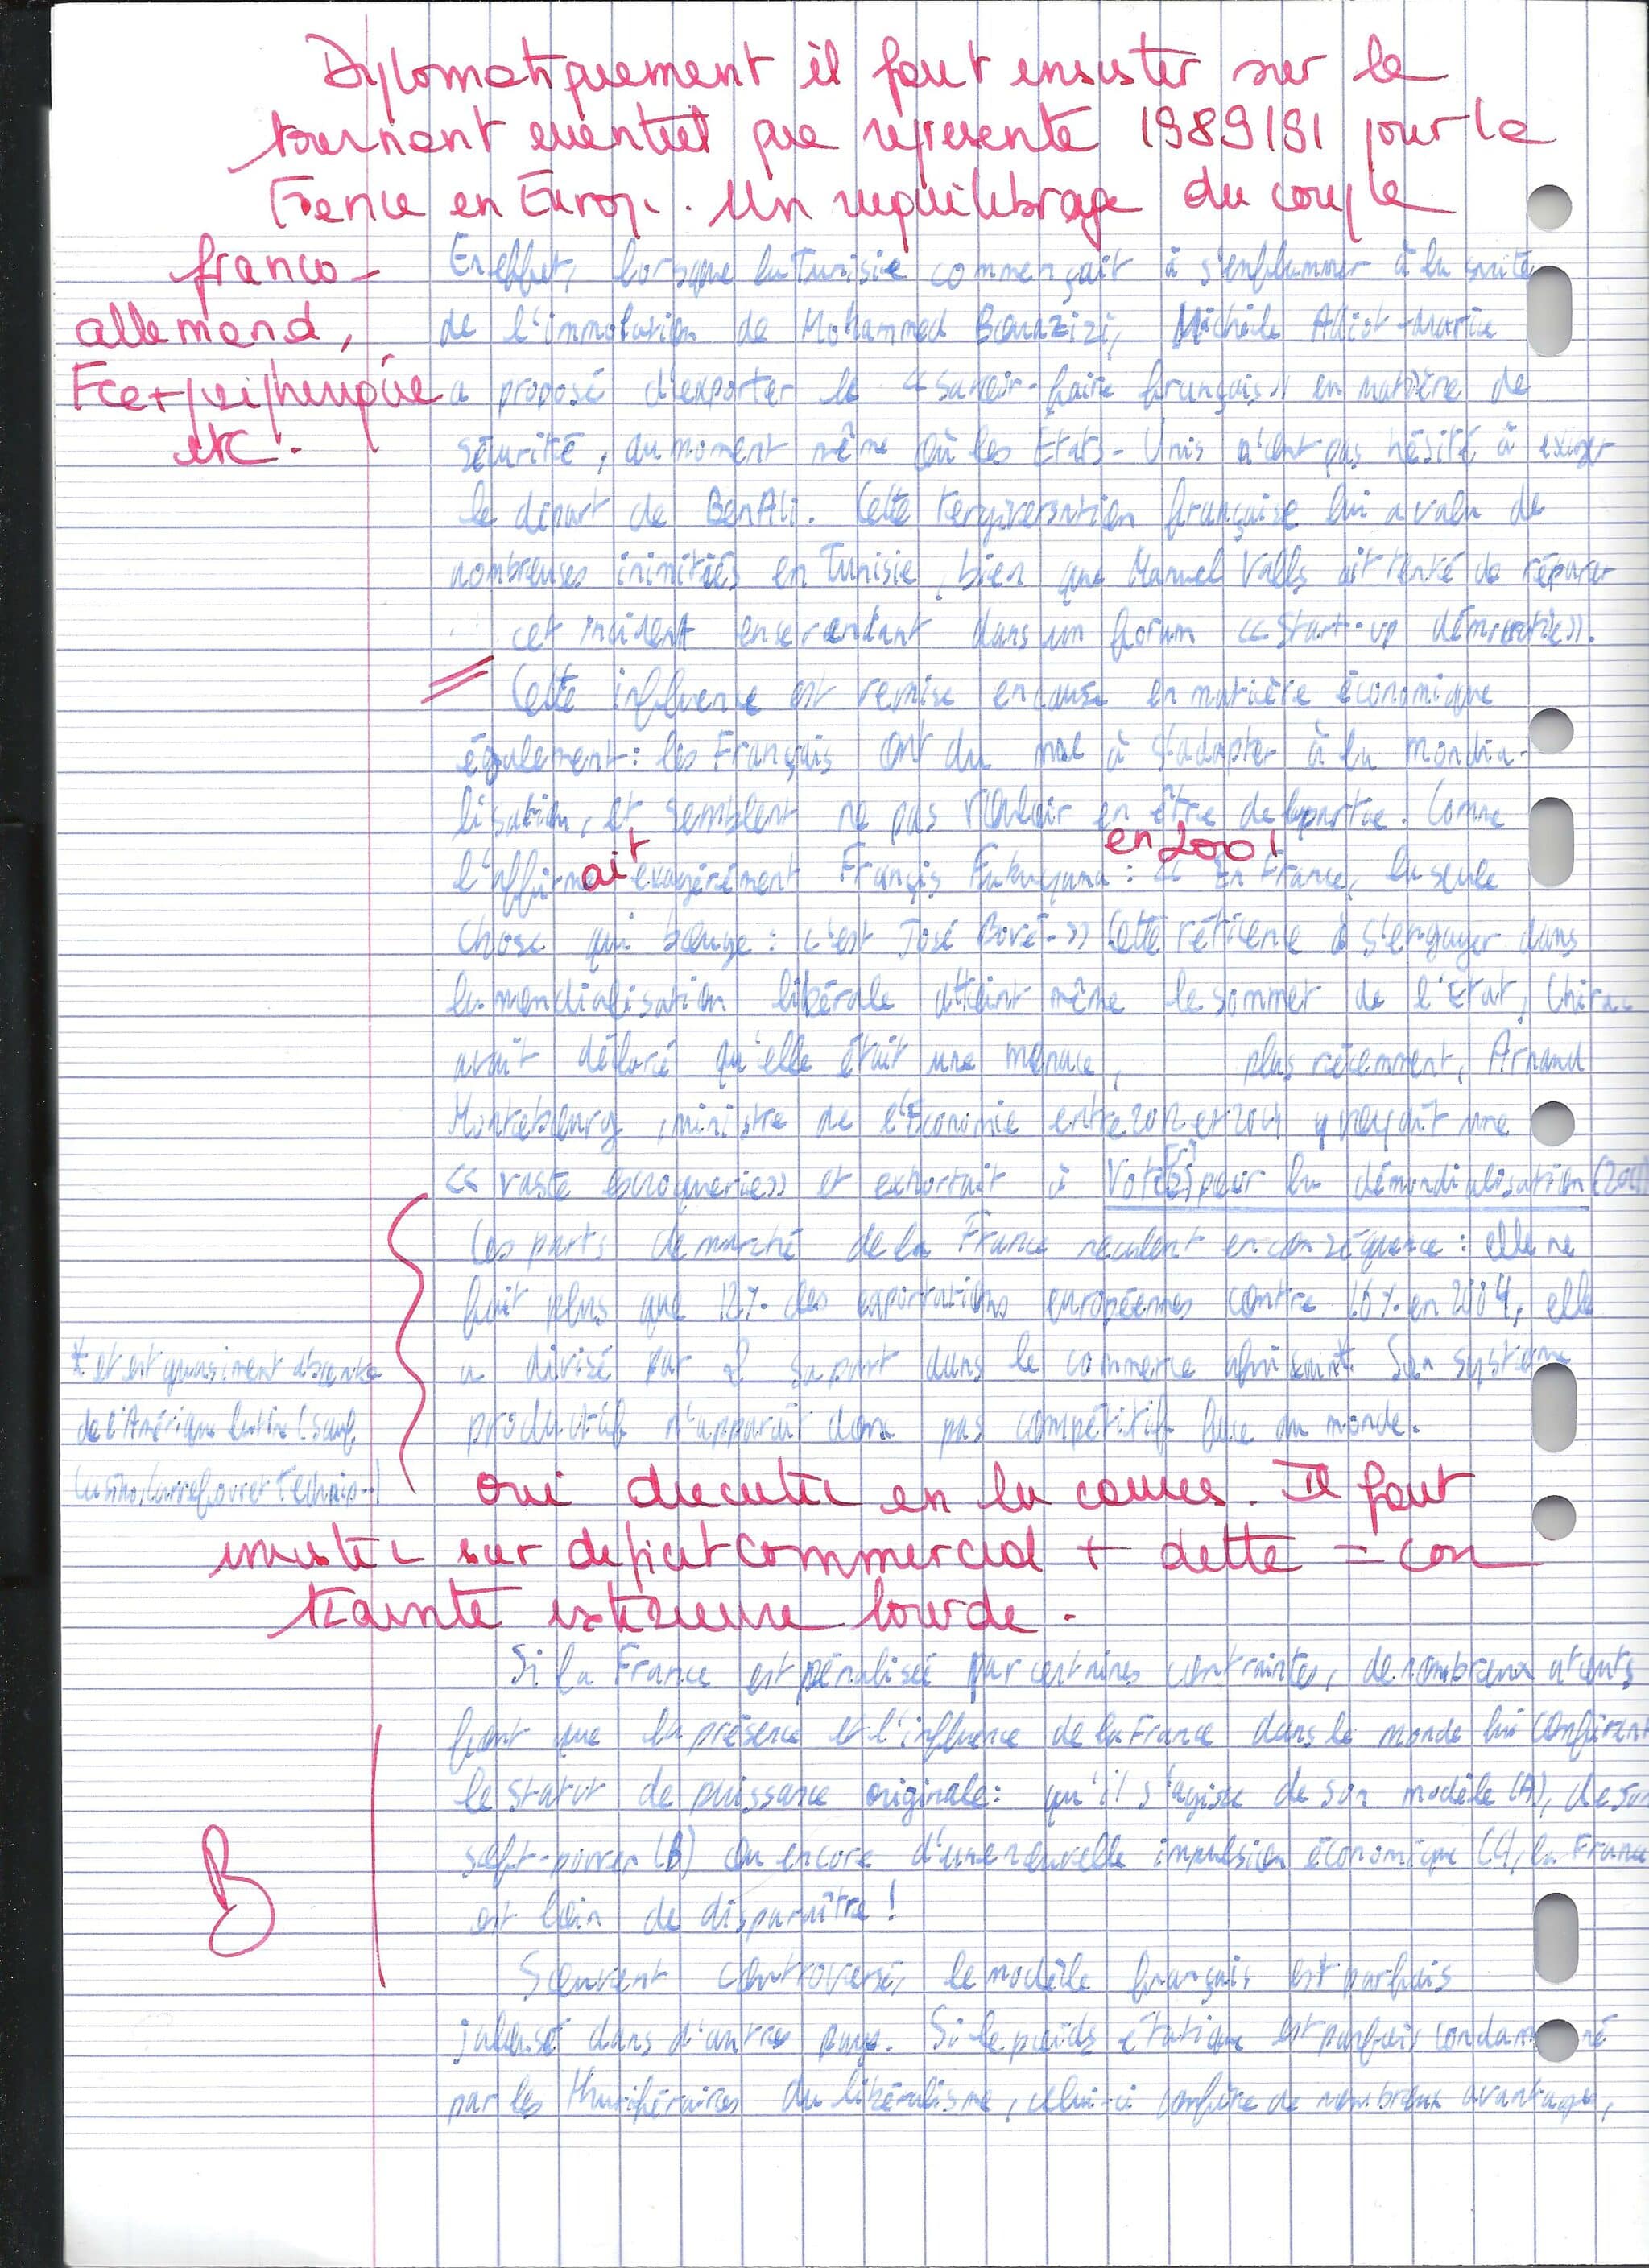 Diplomatiquement il faut insister sur le
tournant eventuel que represente 1989/91 pour la
France en Europe. Un requilibrage du couple
franco-
allemand,
Fce + périphérique
etc.
En effet, lorsque la Tunisie commençait à s'enflammer à la suite
de l'immolation de Mohammed Bouazizi, Michèle Alliot-Marie
a proposé d'exporter le « savoir-faire français » en matière de
sécurité, au moment même où les Etats-Unis n'ont pas hésité à exiger
le départ de Ben Ali. Cette tergiversation française lui a valu de
nombreuses inimitiés en Tunisie, bien que Manuel Valls ait tenté de réparer
cet incident en se rendant dans un forum « Start-up démocratie ».
Cette influence est remise en cause en matière économique
également : les Français ont du mal à s'adapter à la mondia-
lisation, et semblent ne pas vouloir en être de la partie. Comme
en 2001
l'affirmait exagérément Francis Fukuyama : « En France, la seule
chose qui bouge : c'est José Bové. » Cette réticence à s'engager dans
la mondialisation libérale atteint même le sommet de l'Etat, Chirac
avait déclaré qu'elle était une menace, plus récemment, Arnaud
Montebourg, ministre de l'Economie entre 2012 et 2014 y voyait une
« vaste escroquerie » et exhortait à Votez pour la démondialisation (2011)
Les parts de marché de la France reculent en conséquence : elle ne
fait plus que 12% des exportations européennes contre 16% en 2004, elle
a divisé par 2 sa part dans le commerce africain*. Son système
productif n'apparaît donc pas compétitif face au monde.
* et est quasiment absente
de l'Amérique latine (sauf
Casino, Carrefour et Technip...)
Oui discuter en les causes. Il faut
insister sur deficit commercial + dette = con
trainte exterieure lourde.
Si la France est pénalisée par certaines contraintes, de nombreux atouts
font que la présence et l'influence de la France dans le monde lui confèrent
le statut de puissance originale : qu'il s'agisse de son modèle (A), de son
soft-power (B) ou encore d'une nouvelle impulsion économique (C), la France
est loin de disparaître !
B
Souvent controversé, le modèle français est parfois
jalousé dans d'autres pays. Si le poids étatique est parfois condamné
par les thuriféraires du libéralisme, celui-ci confère de nombreux avantages,